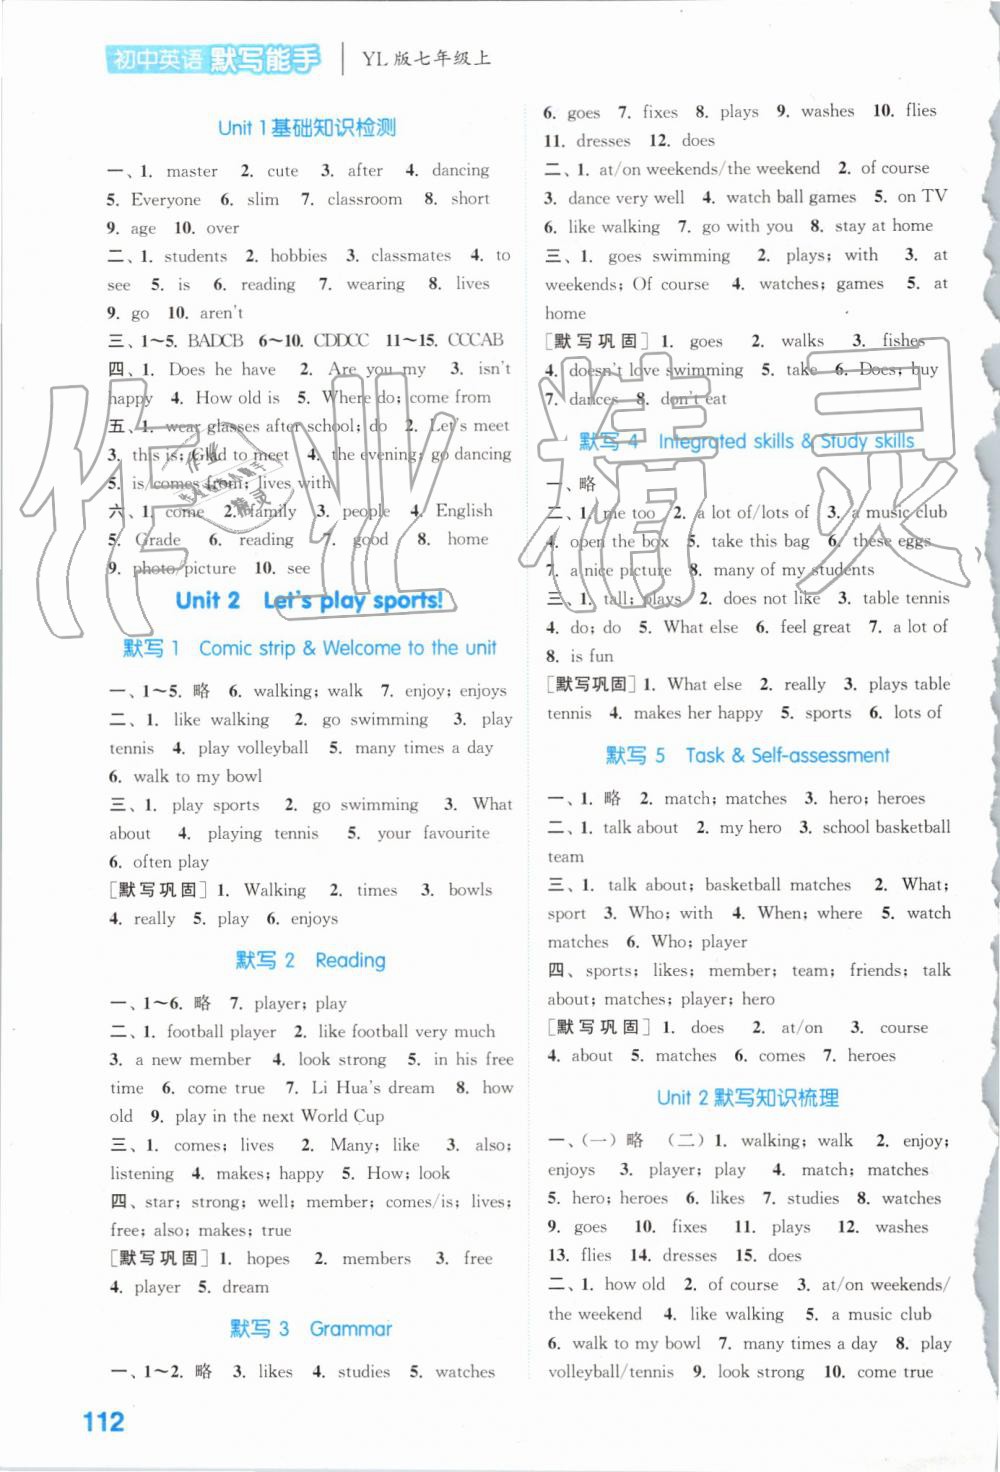 初中英语 默写能手 YL版七年级上
Unit 1基础知识检测
一、1. master 2. cute 3. after 4. dancing
5. Everyone 6. slim 7. classroom 8. short
9. age 10. over
二、1. students 2. hobbies 3. classmates 4. to
see 5. is 6. reading 7. wearing 8. lives
9. go 10. aren't
三、1~5. BADCB 6~10. CDDCC 11~15. CCCAB
四、1. Does he have 2. Are you my 3. isn't
happy 4. How old is 5. Where do; come from
五、1. wear glasses after school; do 2. Let's meet
3. this is; Glad to meet 4. the evening; go dancing
5. is/comes from; lives with
六、1. come 2. family 3. people 4. English
5. Grade 6. reading 7. good 8. home
9. photo/picture 10. see
Unit 2 Let's play sports!
默写 1 Comic strip & Welcome to the unit
一、1~5. 略 6. walking; walk 7. enjoy; enjoys
二、1. like walking 2. go swimming 3. play
tennis 4. play volleyball 5. many times a day
6. walk to my bowl
三、1. play sports 2. go swimming 3. What
about 4. playing tennis 5. your favourite
6. often play
[默写巩固] 1. Walking 2. times 3. bowls
4. really 5. play 6. enjoys
默写 2 Reading
一、1~6. 略 7. player; play
二、1. football player 2. like football very much
3. a new member 4. look strong 5. in his free
time 6. come true 7. Li Hua's dream 8. how
old 9. play in the next World Cup
三、1. comes; lives 2. Many; like 3. also;
listening 4. makes; happy 5. How; look
四、star; strong; well; member; comes/is; lives;
free; also; makes; true
[默写巩固] 1. hopes 2. members 3. free
4. player 5. dream
默写 3 Grammar
一、1~2. 略 3. likes 4. studies 5. watches
112
6. goes 7. fixes 8. plays 9. washes 10. flies
11. dresses 12. does
二、1. at/on weekends/the weekend 2. of course
3. dance very well 4. watch ball games 5. on TV
6. like walking 7. go with you 8. stay at home
三、1. goes swimming 2. plays; with 3. at
weekends; Of course 4. watches; games 5. at
home
[默写巩固] 1. goes 2. walks 3. fishes
4. doesn't love swimming 5. take 6. Does; buy
7. dances 8. don't eat
默写 4 Integrated skills & Study skills
一、略
二、1. me too 2. a lot of/lots of 3. a music club
4. open the box 5. take this bag 6. these eggs
7. a nice picture 8. many of my students
三、1. tall; plays 2. does not like 3. table tennis
4. do; do 5. What else 6. feel great 7. a lot of
8. is fun
[默写巩固] 1. What else 2. really 3. plays table
tennis 4. makes her happy 5. sports 6. lots of
默写 5 Task & Self-assessment
一、1. 略 2. match; matches 3. hero; heroes
二、1. talk about 2. my hero 3. school basketball
team
三、1. talk about; basketball matches 2. What;
sport 3. Who; with 4. When; where 5. watch
matches 6. Who; player
四、sports; likes; member; team; friends; talk
about; matches; player; hero
[默写巩固] 1. does 2. at/on 3. course
4. about 5. matches 6. comes 7. heroes
Unit 2 默写知识梳理
一、(一) 略 (二) 1. walking; walk 2. enjoy;
enjoys 3. player; play 4. match; matches
5. hero; heroes 6. likes 7. studies 8. watches
9. goes 10. fixes 11. plays 12. washes
13. flies 14. dresses 15. does
二、1. how old 2. of course 3. at/on weekends/
the weekend 4. like walking 5. a music club
6. walk to my bowl 7. many times a day 8. play
volleyball/tennis 9. look strong 10. come true
作业精灵